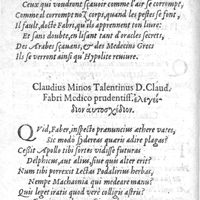 Ceux qui voudront sçauoir comme l'air se corrompt,
Comme il corrompt noz corps, quand les pestes se font,
Il fault, docte Fabri, qu'ils apprennent ton liure:
Et sans doubte, en lisant tant d'oracles secrets,
Des Arabes sçauans, & des Medecins Grecs
Ils se verront ainsi qu'Hypolite reuiure.
Claudius Minos Talentinus D. Claud.
Fabri Medico prudentiss. ἐλεγεί-
διον ἀυτοσχίδιον.
QVid, Faber, inspecto prænuncius æthere vates,
Sic modò sydereas quæris adire plagas?
Cessit Apollo tibi sortes vidisse futuras
Delphicus, aut alius, siue quis alter erit?
Num tibi porrexit Lectas Podalirius herbas,
Nempe Machaonia qui medeare manu?
Quis leget iratis quod verè colligis astris?